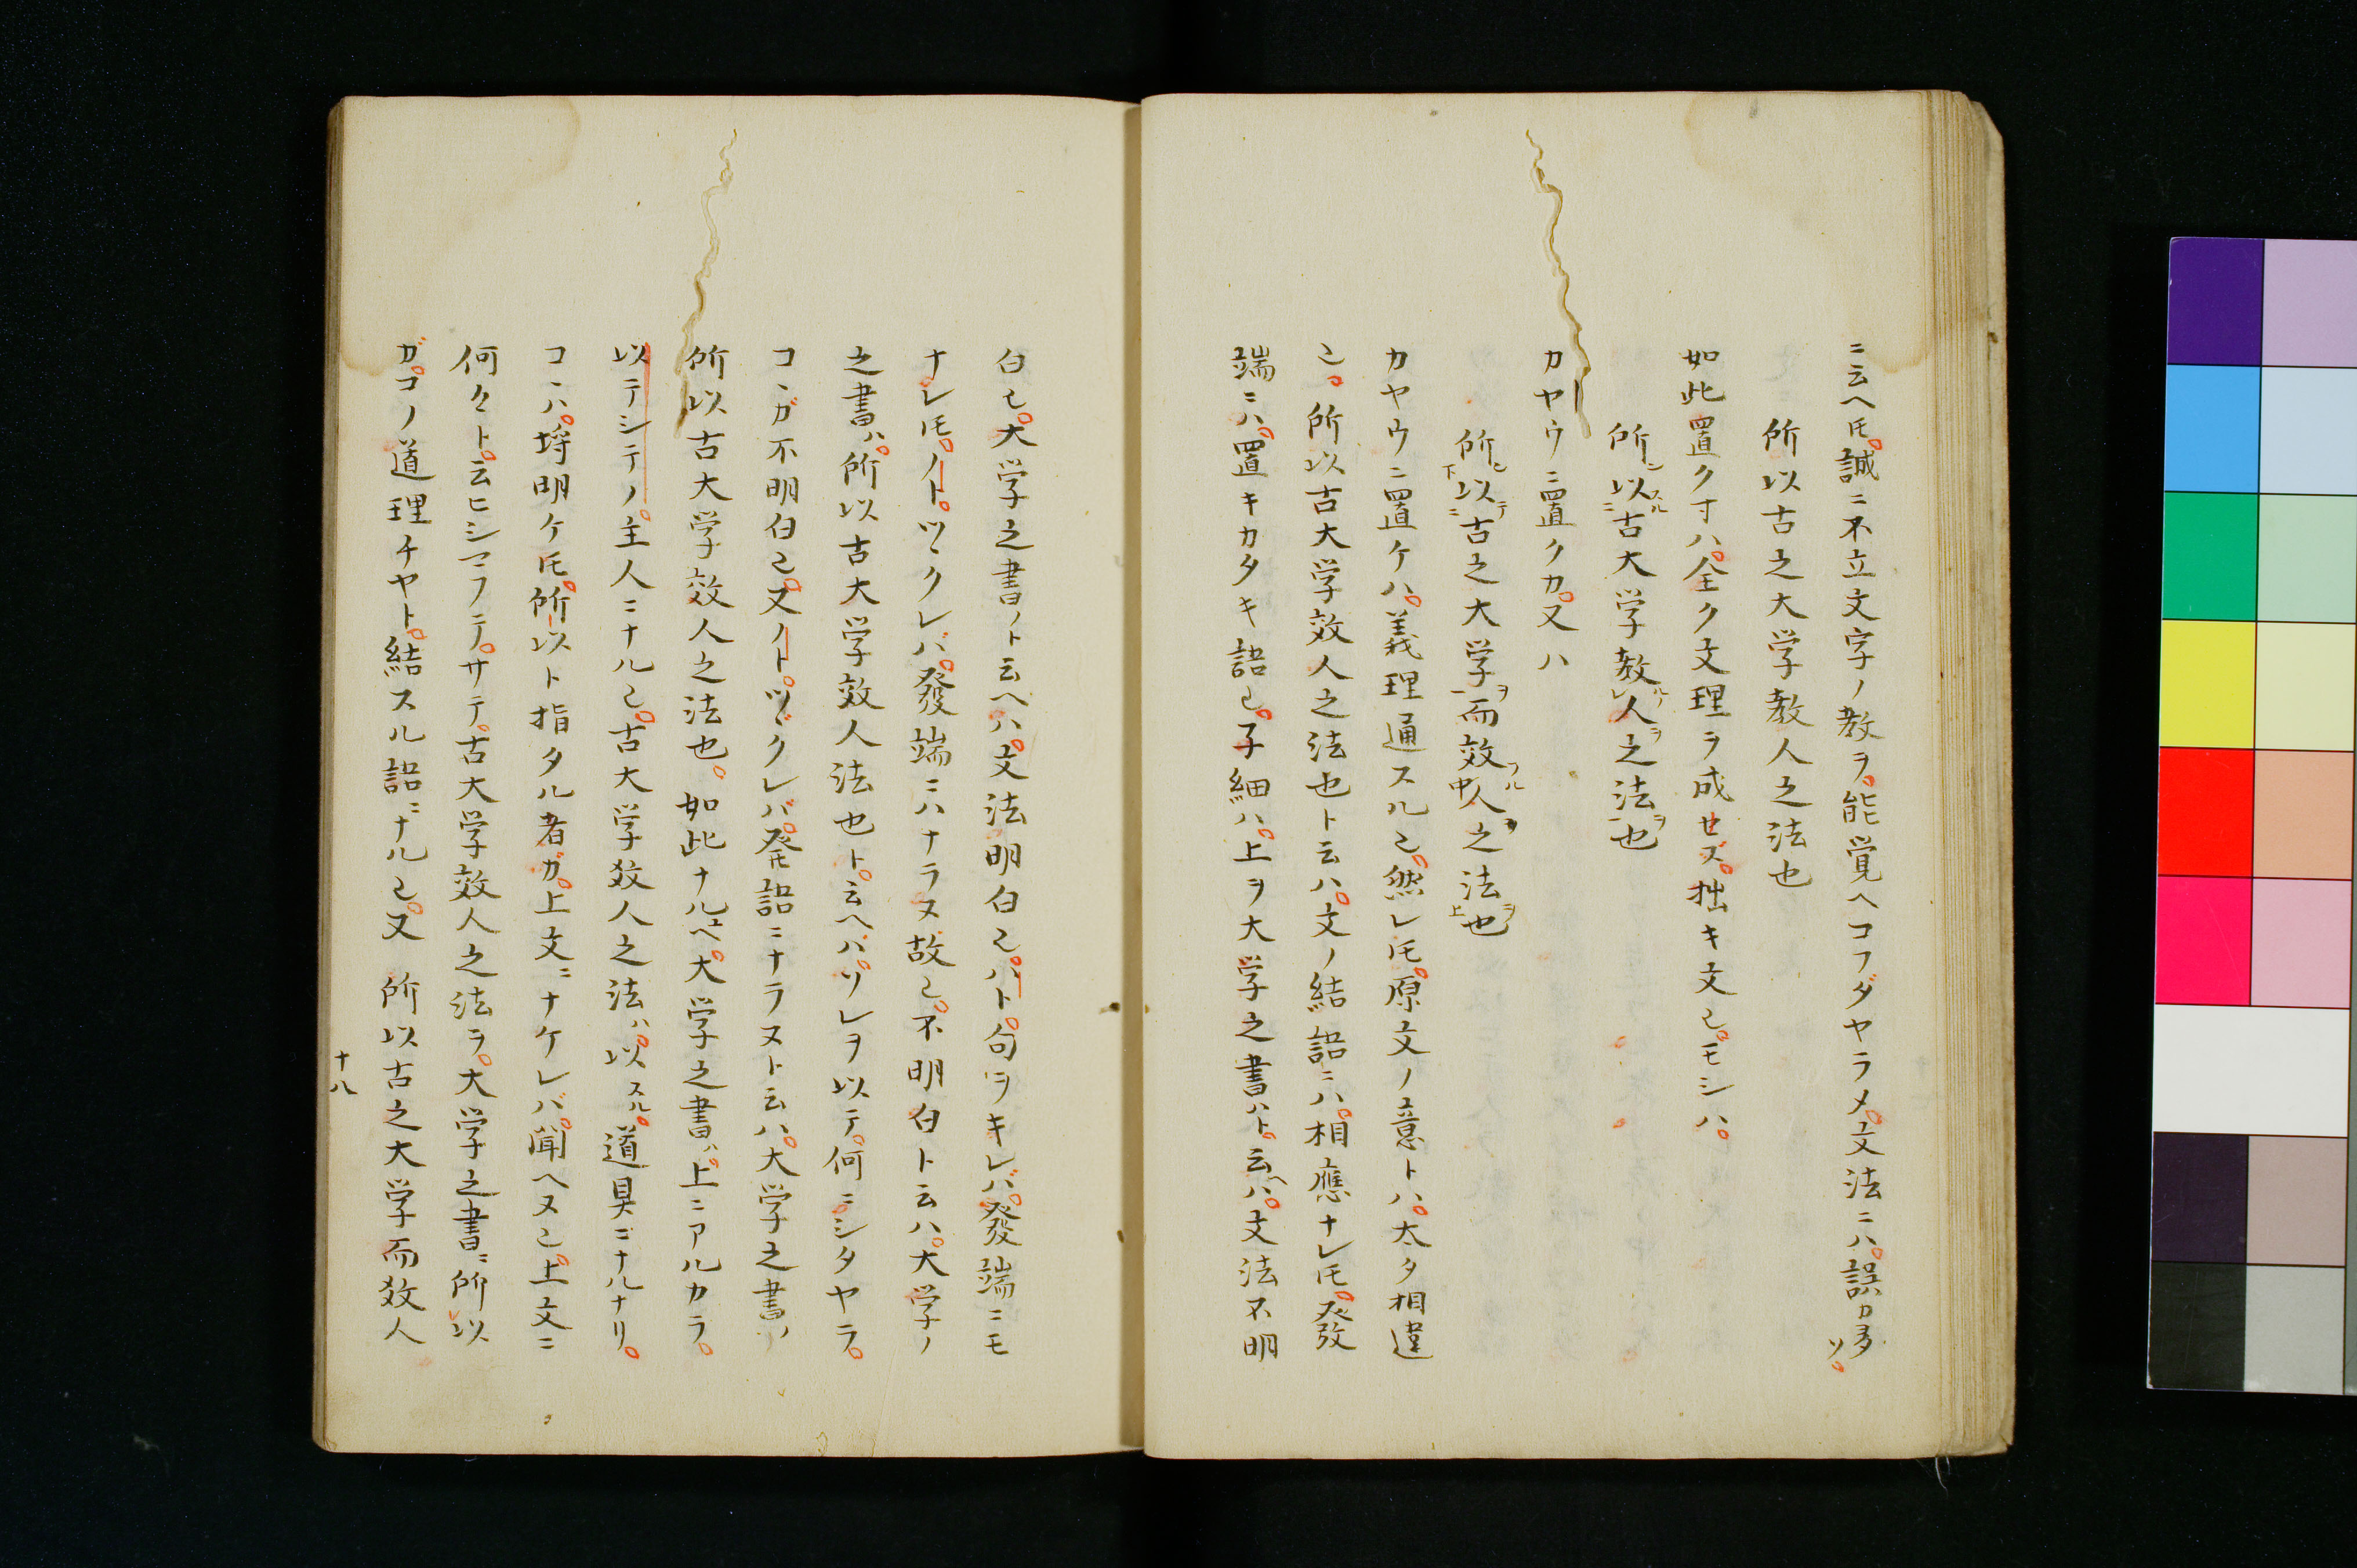 ニ云ヘ𪜈。誠ニ不立文字ノ教ヲ。能覚ヘコフダヤラメ。文法ニハ。誤カ多ソ。
所以古之大学教人之法也
如此置クヿハ。全ク文理ヲ成セズ。拙キ文也。モシハ。
所以古大学教人之法也
カヤウニ置クカ。又ハ
所以古之大学而效人之法也
カヤウニ置ケハ。義理通スル也。然レ𪜈。原文ノ意トハ。太タ相違
也。所以古大学效人之法也ト云ハ。文ノ結語ニハ。相應ナレ𪜈。發
端ニハ。置キカタキ語也。子細ハ。上ヲ大学之書ハト。云ヘハ。文法不明
白也。大学之書ノト云ヘハ。文法明白也。ハト。句ヲキレバ。發端ニモ
ナレ𪜈。ノト。ツヾクレバ。發端ニハナラヌ故也。不明白ト云ハ。大学ノ
之書ハ。所以古大学效人法也ト。云ヘハ。ソレヲ以テ。何ニシタヤラ。
コヽガ不明白也。又ノト。ツヾクレバ。発語ニナラヌト云ハ。大学之書ノ
所以古大学效人之法也。如此ナルユヘ。大学之書ハ。上ニアルカラ。
以テシテノ。主人ニナル也。古大学效人之法ハ。以スル。道具ニナルナリ。
コヽハ。埒明ケ𪜈。所以ト指タル者ガ。上文ニナケレバ。聞ヘヌ也。上文ニ
何々ト。云ヒシマフテ。サテ。古大学效人之法ヲ。大学之書ニ所以
ガ。コノ道理チヤト。結スル語ニナル也。又 所以古之大学而效人
十八